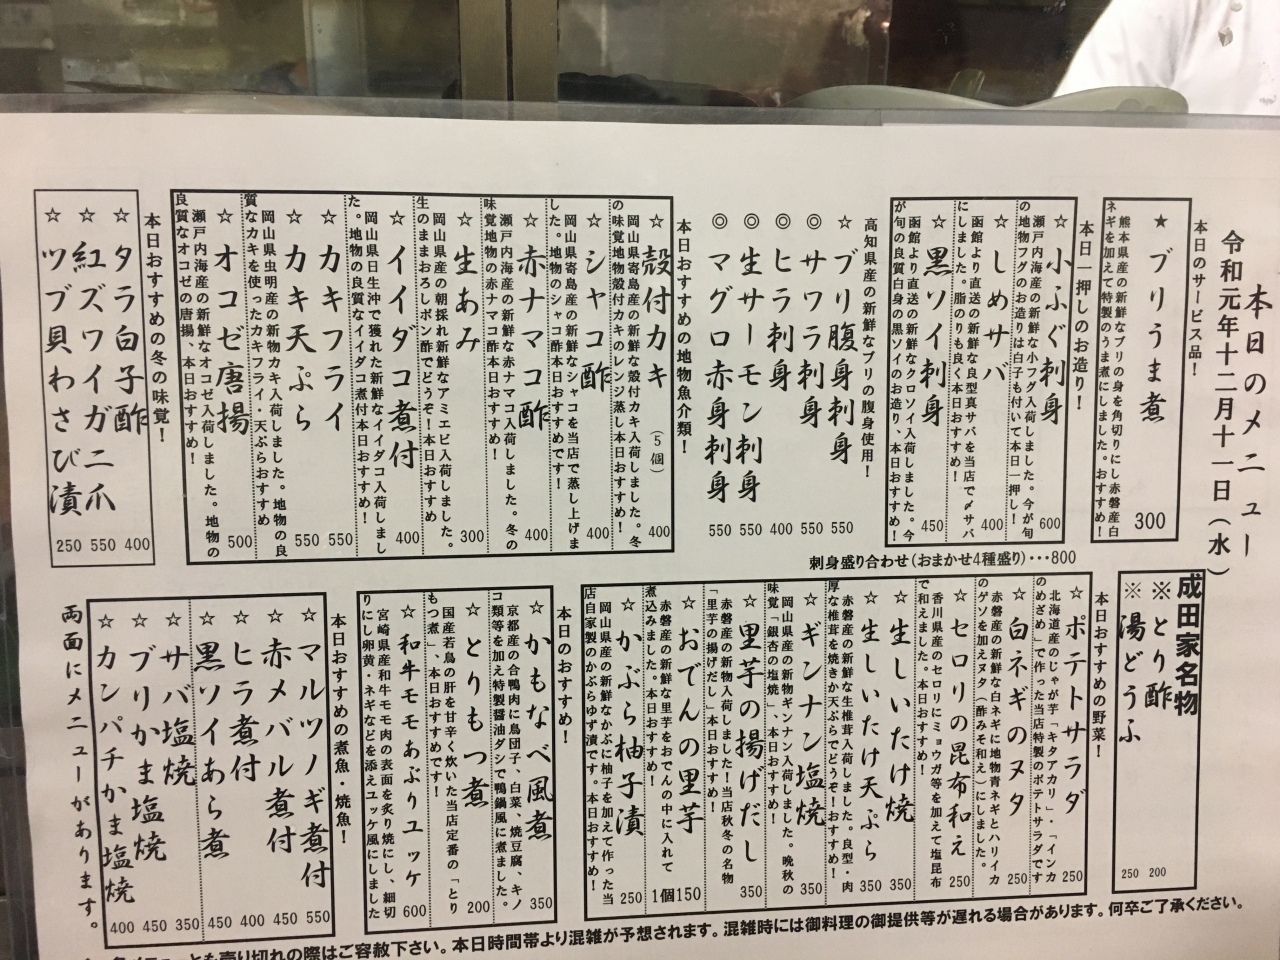 本日のメニュー
令和元年十二月十一日(水)
本日のサービス品!
★ブリうま煮 300
熊本県産の新鮮なブリの身を角切りにし赤磐産白
ネギを加えて特製のうま煮にしました。おすすめ!
本日一押しのお造り!
☆小ふぐ刺身 600
瀬戸内海産の新鮮な小フグ入荷しました。今が旬
の地物フグのお造りは白子も付いて本日一押し!
☆しめサバ 400
函館より直送の新鮮な良型真サバを当店で〆サバ
にしました。脂のりも良く本日おすすめ!
☆黒ソイ刺身 450
函館より直送の新鮮なクロソイ入荷しました。今
が旬の良質白身の黒ソイのお造り、本日おすすめ!
高知県産の新鮮なブリの腹身使用!
☆ブリ腹身刺身 550
◎サワラ刺身 550
◎ヒラ刺身 400
◎生サーモン刺身 550
◎マグロ赤身刺身 550
刺身盛り合わせ(おまかせ4種盛り)・・・800
本日おすすめの地物魚介類!
☆殻付カキ(5個) 400
岡山県寄島産の新鮮な殻付カキ入荷しました。冬
の味覚地物殻付カキのレンジ蒸し本日おすすめ!
☆シャコ酢 400
岡山県寄島産の新鮮なシャコを当店で蒸し上げま
した。地物のシャコ酢本日おすすめです!
☆赤ナマコ酢 400
瀬戸内海産の新鮮な赤ナマコ入荷しました。冬の
味覚地物の赤ナマコ酢本日おすすめ!
☆生あみ 300
岡山県産の朝採れ新鮮なアミエビ入荷しました。
生のままおろしポン酢でどうぞ!本日おすすめ
☆イイダコ煮付 400
岡山県日生沖で獲れた新鮮なイイダコ入荷しまし
た。地物の良質なイイダコ煮付本日おすすめ!
☆カキフライ 550
☆カキ天ぷら 550
岡山県虫明産の新物カキ入荷しました。地物の良
質なカキを使ったカキフライ・天ぷらおすすめ
☆オコゼ唐揚 500
瀬戸内海産の新鮮なオコゼ入荷しました。地物の
良質なオコゼの唐揚、本日おすすめ!
本日おすすめの冬の味覚!
☆タラ白子酢 400
☆紅ズワイガニ爪 550
☆ツブ貝わさび漬 250
成田家名物
※とり酢 200
※湯どうふ 250
本日おすすめの野菜!
☆ポテトサラダ 250
北海道産のじゃが芋「キタアカリ」・「インカ
のめざめ」で作った当店特製のポテトサラダです
☆白ネギのヌタ 250
赤磐産の新鮮な白ネギに地物青ネギとハリイカ
のゲソを加えヌタ(酢みそ和え)にしました。
☆セロリの昆布和え 250
香川県産のセロリにミョウガ等を加えて塩昆布
で和えました。本日おすすめ!
☆生しいたけ焼 350
☆生しいたけ天ぷら 350
赤磐産の新鮮な生椎茸入荷しました。良型・肉
厚な椎茸を焼きか天ぷらでどうぞ!おすすめ!
☆ギンナン塩焼 350
岡山県産の新物ギンナン入荷しました。晩秋の
味覚「銀杏の塩焼」、本日おすすめ!
☆里芋の揚げだし 350
赤磐産の新物入荷しました!当店秋冬の名物
「里芋の揚げだし」本日おすすめ!
☆おでんの里芋 1個150
赤磐産の新鮮な里芋をおでんの中に入れて
煮込みました。本日おすすめ!
☆かぶら柚子漬 250
岡山県産の新鮮なかぶに柚子を加えて作った当
店自家製のかぶらゆず漬です。本日おすすめ!
本日のおすすめ!
☆かもなべ風煮 350
京都産の合鴨肉に鳥団子、白菜、焼豆腐、キノ
コ類等を加え特製醤油ダシで鴨鍋風に煮ました。
☆とりもつ煮 200
国産若鳥の肝を甘辛く炊いた当店定番の「とり
もつ煮」、本日おすすめです!
☆和牛モモあぶりユッケ 600
宮崎県産和牛モモ肉の表面を炙り焼にし、細切
りにし卵黄・ネギなどを添えユッケ風にしました
本日おすすめの煮魚・焼魚!
☆マルツノギ煮付 550
☆赤メバル煮付 450
☆ヒラ煮付 400
☆黒ソイあら煮 450
☆サバ塩焼 350
☆ブリかま塩焼 450
☆カンパチかま塩焼 400
両面にメニューがあります。
とも売り切れの際はご容赦下さい。本日時間帯より混雑が予想されます。混雑時には御料理の御提供等が遅れる場合があります。何卒ご了承ください。